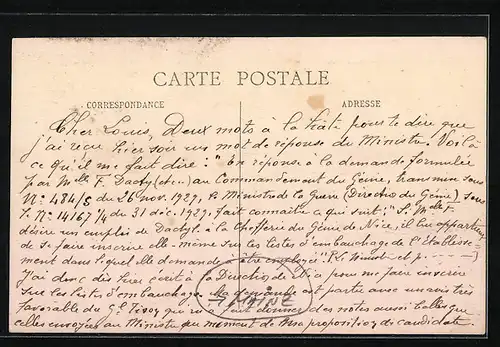 CARTE POSTALE
CORRESPONDANCE
ADRESSE
Cher Louis, Deux mots à la hâte pour te dire que
j'ai reçu hier soir un mot de réponse du Ministre. Voilà
ce qu'il me fait dire : "En réponse à la demande formulée
par Mlle F. Dacty(...) au Commandement du Génie, transmise sous
N° 484/S du 26 nov. 1929, le Ministre de la Guerre (Direction du Génie) sous
S. N° 14167 1/4 du 31 déc. 1929, fait connaître ce qui suit : "Si Mlle F.
désire un emploi de Dactyl. à la Chefferie du Génie de Nice, il lui appartient
de se faire inscrire elle-même sur les listes d'embauchage de l'Etablisse-
ment dans lequel elle demande à être employée". P. le Ministre et p.
J'ai donc dès hier écrit à la Direction de Nice pour me faire inscrire
sur les listes d'embauchage. Ma demande est partie avec un avis très
favorable du Gl qui m'a fait donner des notes aussi belles que
celles envoyées au Ministre au moment de ma proposition de candidate.